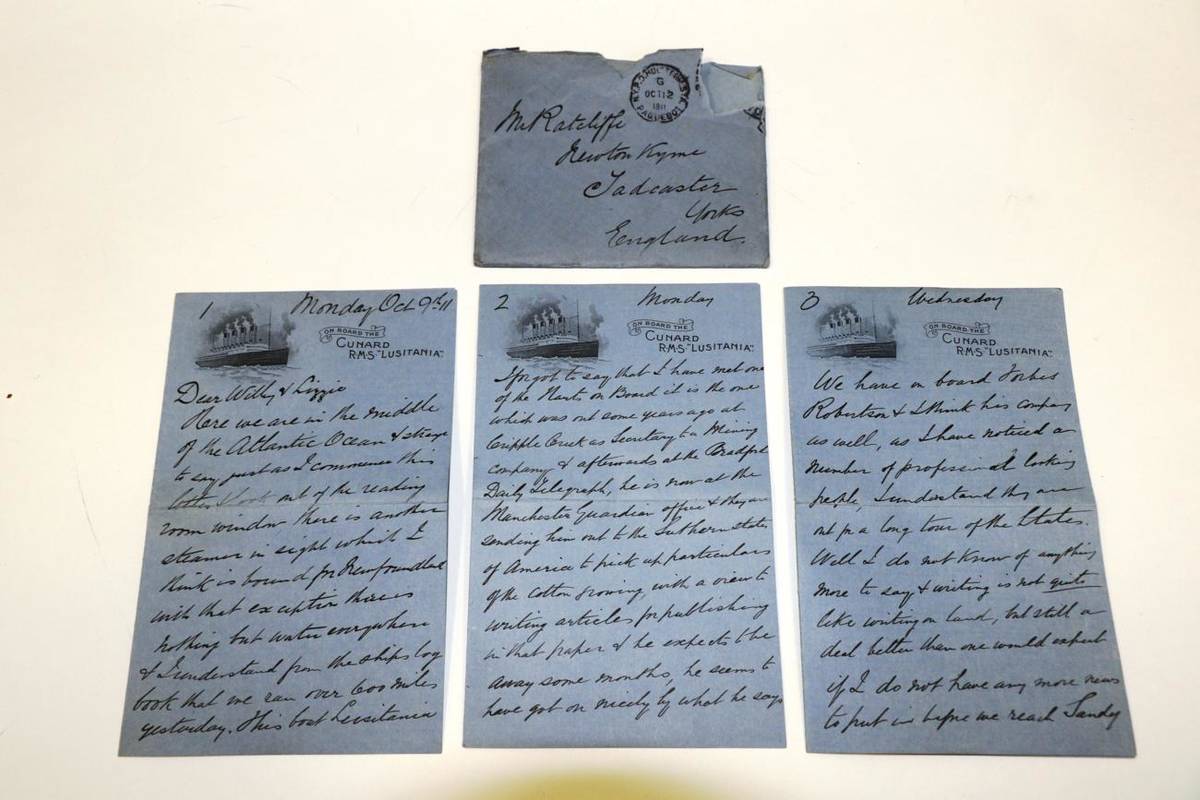 N.Y.P.O.
G
OCT 12
1911
PAQUEBOT
Mr Ratcliffe
Newton Kyme
Tadcaster
Yorks
England.
1 Monday Oct 9th 11
ON BOARD THE
CUNARD
R.M.S. "LUSITANIA".
Dear Willy & Lizzie
Here we are in the middle
of the Atlantic Ocean & strange
to say just as I commence this
letter I look out of the reading
room window there is another
steamer in sight which I
think is bound for Newfoundland
with that exception there is
nothing but water everywhere
& I understand from the ships log
book that we ran over 600 miles
yesterday. This boat Lusitania
2 Monday
ON BOARD THE
CUNARD
R.M.S. "LUSITANIA".
I forgot to say that I have met one
of the on Board it is the one
which was out some years ago at
Cripple Creek as Secretary to a Mining
company & afterwards at the Bradford
Daily Telegraph, he is now at the
Manchester Guardian office & they are
sending him out to the Suthern states
of America to pick up particulars
of the Cotton growing, with a view to
writing articles for publishing
in that paper & he expects to be
away some months, he seems to
have got on nicely by what he says
3 Wednesday
ON BOARD THE
CUNARD
R.M.S. "LUSITANIA".
We have on board Forbes
Robertson & I think his company
as well, as I have noticed a
number of professional looking
people, I understand they are
out for a long tour of the States.
Well I do not know of anything
more to say & writing is not quite
like writing on land, but still a
deal better than one would expect
if I do not have any more news
to put in before we reach Sandy